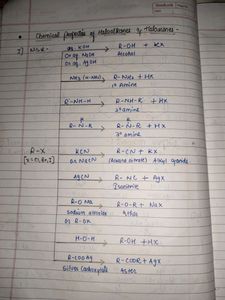 Chemical properties of Haloalkanes & Haloarenes :-
I] NSR:-
aq KOH
Or aq NaOH
Or aq AgOH
R-OH + KX
Alcohol
NH3 (H-NH2)
R-NH2 + HX
1° Amine
R'-NH-H
R'-NH-R + HX
2° amine
R-N-R + HX
3° amine
R-X
[X=Cl,Br,I]
KCN
Or NaCN
R-CN + KX
Alkyl cyanide
AgCN
R-NC + AgX
Isonitrile
R-O Na
Sodium alkoxide
Or R-OK
R-O-R + NaX
Ether
H-O-H
R-OH + HX
R-COOAg
Silver Carboxylate
R-COOR + AgX
Ester